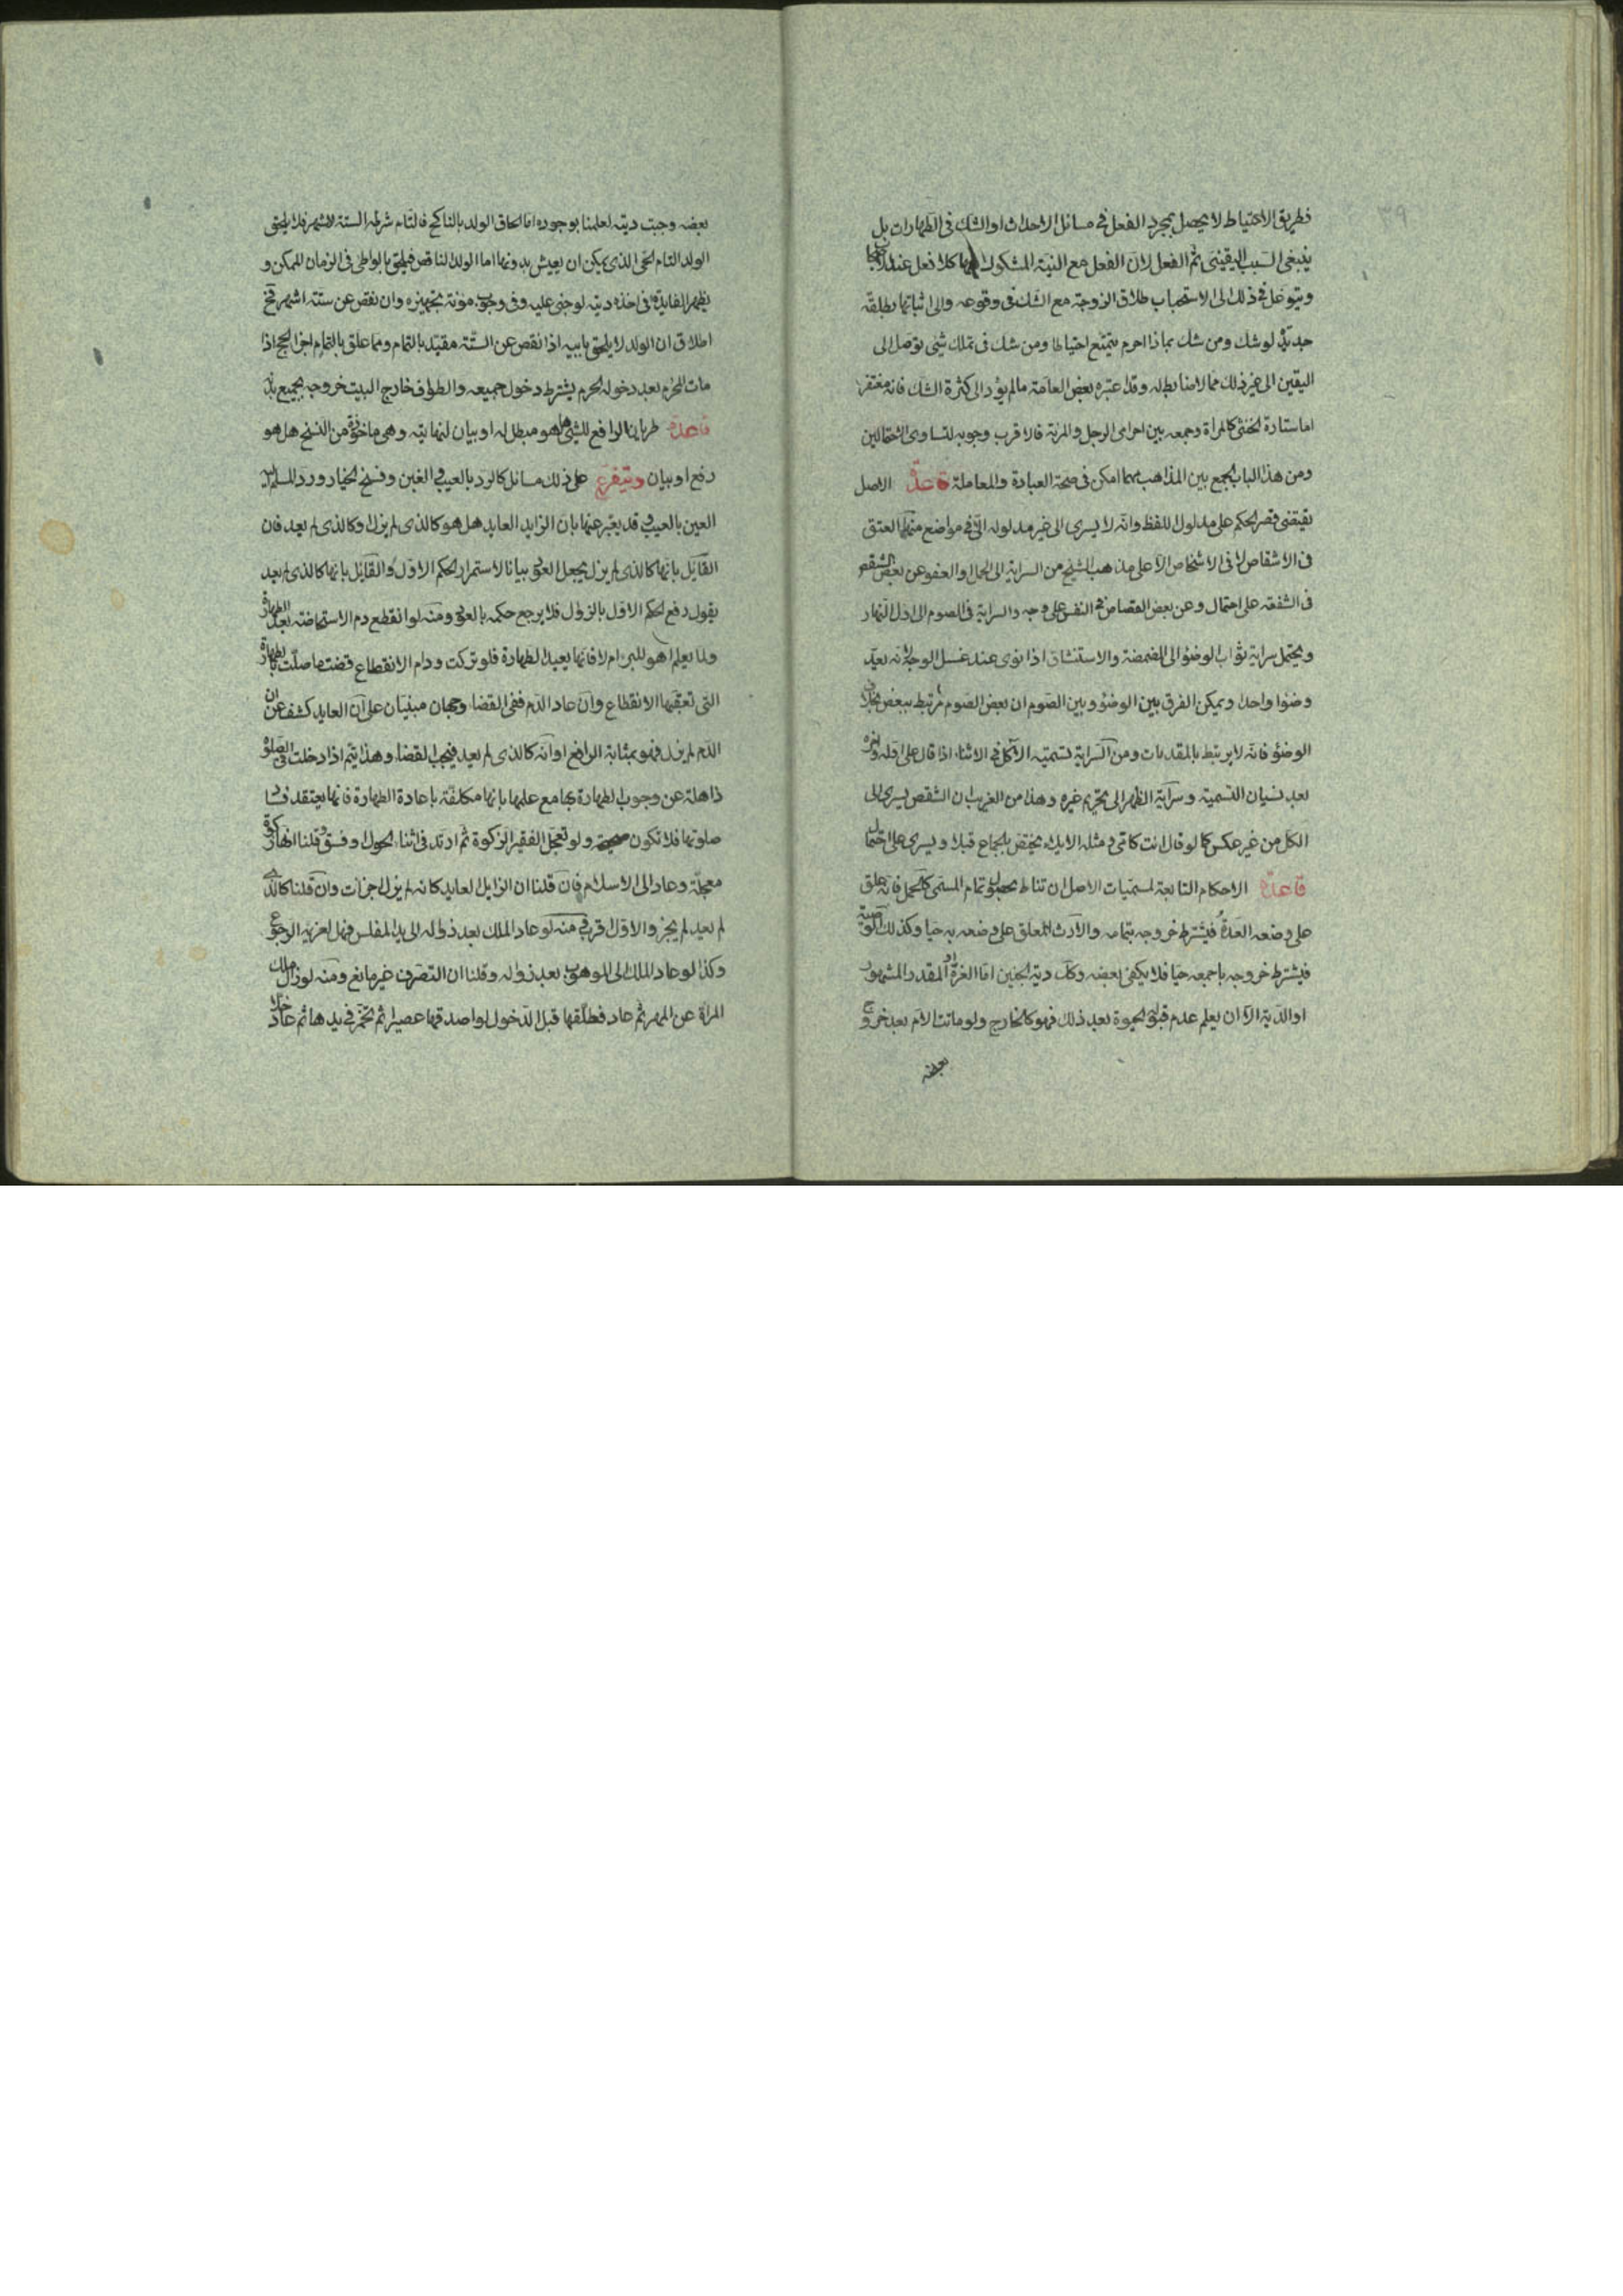 ٣٩
فطريق الاحتياط لا يحصل بمجرد الفعل في مسائل الاحداث او الشك في الطهارات بل
ينبغي السبب اليقيني ثم الفعل لان الفعل مع النية المشكوك فيها كلا فعل عند
ويتوغل في ذلك الى الاستحباب طلاق الزوجة مع الشك في وقوعه والى اثباتها بطلقة
جديدة لو شك ومن شك بماذا احرم يتمتع احتياطا ومن شك في تملك شئ توصل الى
اليقين الى غير ذلك مما لا ضابط له وقد اعتبره بعض العامة ما لم يؤد الى كثرة الشك فانه مغتفر
اما ستارة الخنثى كالمراة وجمعه بين احرامي الرجل والمرئة فالاقرب وجوبه لتساوي الاحتمالين
ومن هذا الباب الجمع بين المذاهب مهما امكن في صحة العبادة والمعاملة قاعدة الاصل
يقتضي قصر الحكم على مدلول اللفظ وانه لا يسري الى غير مدلوله الا في مواضع منها العتق
في الاشقاص لا في الاشخاص الا على مذهب الشيخ من السراية الى الحمل والعفو عن بعض الشقص
في الشفعة على احتمال وعن بعض القصاص في النفس على وجه والسراية في الصوم الى اول النهار
ويحتمل سراية ثواب الوضوء الى المضمضة والاستنشاق اذا نوى عند غسل الوجه لانه يعد
وضوا واحدا ويمكن الفرق بين الوضوء وبين الصوم ان بعض الصوم مرتبط ببعض بخلاف
الوضؤ فانه لا يرتبط بالمقدمات ومن السراية تسمية الاكل في الاثناء اذا قال على اوله واخره
بعد نسيان التسمية وسراية الظهر الى تحريم غيره وهذا من الغريب ان الشقص يسري الى
الكل من غير عكس كما لو قال انت كامي ومثله الايلاء يختص بالجماع قبلا ويسري على احتمال
قاعدة الاحكام التابعة لمسميات الاصل ان تناط بحصول تمام المسمى كالحمل فانه علق
على وضعه العدة فيشترط خروجه بتمامه والارث المعلق على وضعه به حيا وكذلك الوصية
فيشترط خروجه باجمعه حيا فلا يكفي بعضه وكك دية الجنين اما الغرة او المقدر المشهور
او الدية الا ان يعلم عدم قبول الحيوة بعد ذلك فهو كالخارج ولو ماتت الام بعد خروج
بعضه
بعضه وجبت ديته لعلمنا بوجوده اما الحاق الولد بالناكح فالتام شرطه الستة الاشهر فلا يلحق
الولد التام الحي الذي يمكن ان يعيش بدونها اما الولد الناقص فيلحق بالواطي في الزمان الممكن و
يظهر الفايدة في اخذه ديته لو جنى عليه وفي وجوب مؤنة تجهيزه وان نقص عن ستة اشهر فح
اطلاق ان الولد لا يلحق بابيه اذا نقص عن الستة مقيد بالتمام ومما علق بالتمام اجزاء الحج اذا
مات المحرم بعد دخوله الحرم يشترط دخول جميعه والطواف خارج البيت خروجه بجميع بدنه
قاعدة طريان الرافع للشئ هل هو مبطل له او بيان لنهايته وهي ماخوذة من النسخ هل هو
رفع او بيان ويتفرع على ذلك مسائل كالرد بالعيب في الغبن وفسخ الخيار ورد المسلم
العين بالعيب وقد يعبر عنها بان الزايل العايد هل هو كالذي لم يزل او كالذي لم يعد فان
القايل بانها كالذي لم يزل يجعل العود بيانا لاستمرار الحكم الاول والقايل بانها كالذي لم يعد
يقول رفع الحكم الاول بالزوال فلا يرجع حكمه بالعود ومنه لو انقطع دم الاستحاضة بعد الطهارة
ولما يعلم اهو للبرء ام لا فانها يعيد الطهارة فلو تركت ودام الانقطاع قضت ما صلت بالطهارة
التي تعقبها الانقطاع وان عاد الدم ففي القضاء وجهان مبنيان على ان العايد كشف عن ان
الدم لم يزل فهو بمثابة الرافع او انه كالذي لم يعد فيجب القضاء وهذا يتم اذا دخلت في الصلوة
ذاهلة عن وجوب الطهارة بجامع علمها بانها مكلفة باعادة الطهارة فانها يعتقد فساد
صلوتها فلا تكون صحيحة ولو تعجل الفقير الزكوة ثم ارتد في اثناء الحول او فسق وقلنا انها زكوة
معجلة وعاد الى الاسلام فان قلنا ان الزايل العايد كانه لم يزل اجزات وان قلنا كالذي
لم يعد لم يجز والاول قريب منه لو عاد الملك بعد زواله الى يد المفلس فهل لغريمه الرجوع
وكذا لو عاد الملك الى الموهوب بعد زواله وقلنا ان التصرف غير مانع ومنه لو زال ملك
المراة عن المهر ثم عاد فطلقها قبل الدخول او اصدقها عصيرا ثم تخمر في يدها ثم عاد خلا